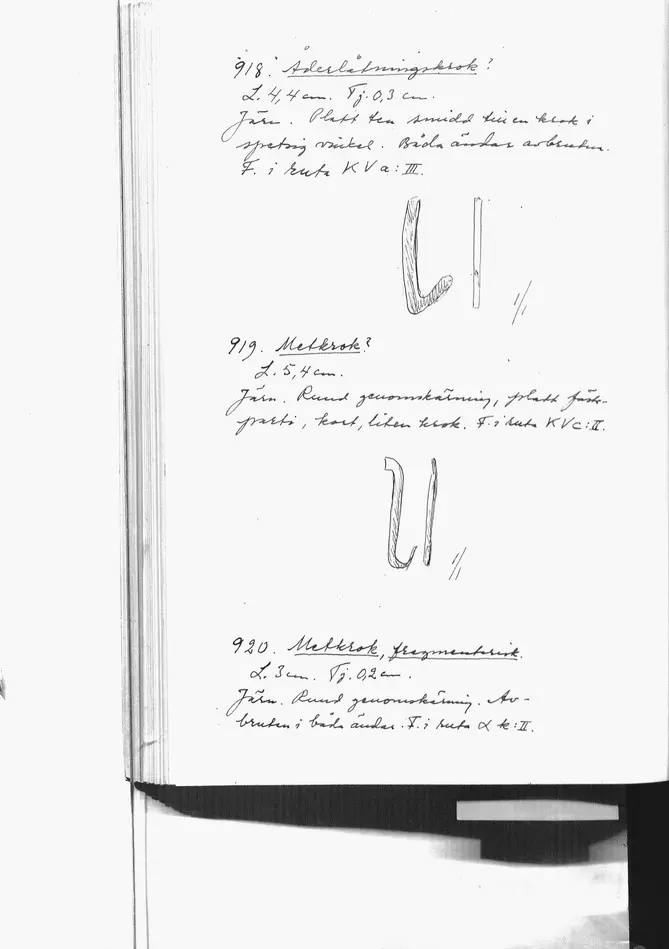 918. Åderlåtningskrok?
L. 4,4 cm. Tj. 0,3 cm.
Järn. Platt ten smidd till en krok i
spetsig vinkel. Båda ändar avbruten.
F. i ruta K V a: III.
1/1
919. Metkrok?
L. 5,4 cm.
Järn. Rund genomskärning, platt fäst-
parti, kort, liten krok. F. i ruta K V c: II.
1/1
920. Metkrok, fragmentarisk.
L. 3 cm. Tj. 0,2 cm.
Järn. Rund genomskärning. Av-
bruten i båda ändar. F. i ruta α k: II.